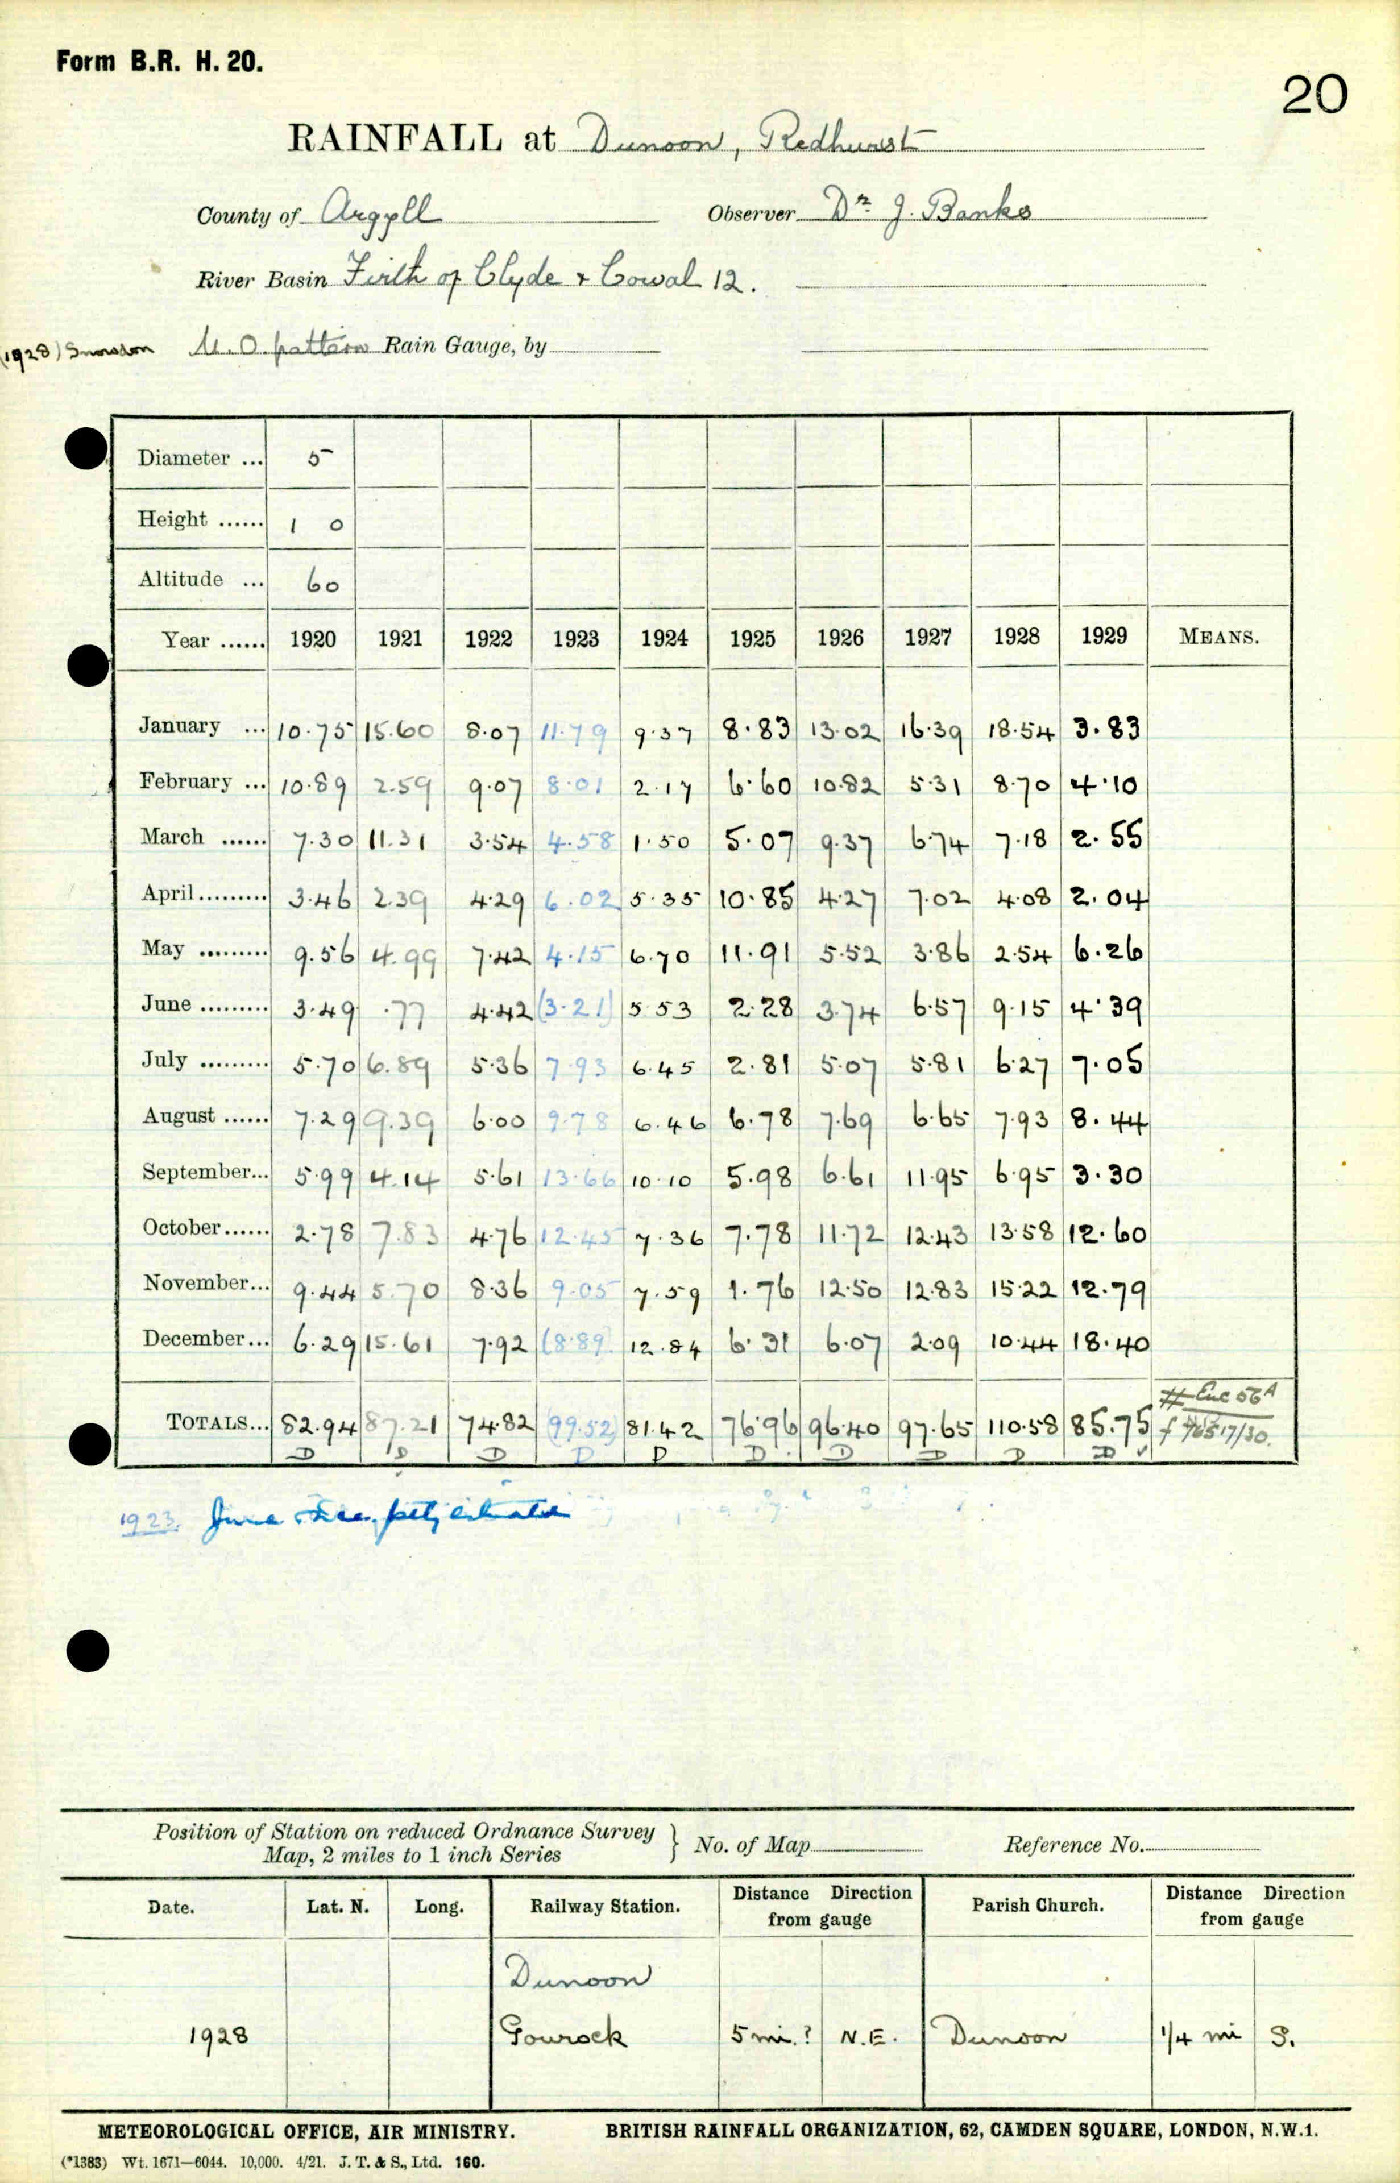 Form B.R. H. 20.
20
RAINFALL at Dunoon, Redhurst
County of Argyll Observer Dr. J. Banks
River Basin Firth of Clyde + Cowal 12.
(1928) Snowdon M.O. pattern Rain Gauge, by
Diameter ... 5
Height ...... 1 0
Altitude ... 60
Year ...... 1920 1921 1922 1923 1924 1925 1926 1927 1928 1929 MEANS.
January ... 10.75 15.60 8.07 11.79 9.37 8.83 13.02 16.39 18.54 3.83
February ... 10.89 2.59 9.07 8.01 2.17 6.60 10.82 5.31 8.70 4.10
March ...... 7.30 11.31 3.54 4.58 1.50 5.07 9.37 6.74 7.18 2.55
April ......... 3.46 2.39 4.29 6.02 5.35 10.85 4.27 7.02 4.08 2.04
May ......... 9.56 4.99 7.42 4.15 6.70 11.91 5.52 3.86 2.54 6.26
June ......... 3.49 .77 4.42 (3.21) 5.53 2.28 3.74 6.57 9.15 4.39
July ......... 5.70 6.89 5.36 7.93 6.45 2.81 5.07 5.81 6.27 7.05
August ...... 7.29 9.39 6.00 9.78 6.46 6.78 7.69 6.65 7.93 8.44
September... 5.99 4.14 5.61 13.66 10.10 5.98 6.61 11.95 6.95 3.30
October...... 2.78 7.83 4.76 12.45 7.36 7.78 11.72 12.43 13.58 12.60
November... 9.44 5.70 8.36 9.05 7.59 1.76 12.50 12.83 15.22 12.79
December... 6.29 15.61 7.92 (8.89) 12.84 6.31 6.07 2.09 10.44 18.40
TOTALS... 82.94 87.21 74.82 (99.52) 81.42 76.96 96.40 97.65 110.58 85.75
D D D D D D D D D D
1923. June + Dec. ptly estimated
Position of Station on reduced Ordnance Survey
Map, 2 miles to 1 inch Series } No. of Map Reference No.
Date. Lat. N. Long. Railway Station. Distance Direction from gauge Parish Church. Distance Direction from gauge
Dunoon
1928 Gourock 5 mi. ? N.E. Dunoon 1/4 mi S.
METEOROLOGICAL OFFICE, AIR MINISTRY. BRITISH RAINFALL ORGANIZATION, 62, CAMDEN SQUARE, LONDON, N.W.1.
(*1383) Wt. 1671—6044. 10,000. 4/21. J. T. & S., Ltd. 160.